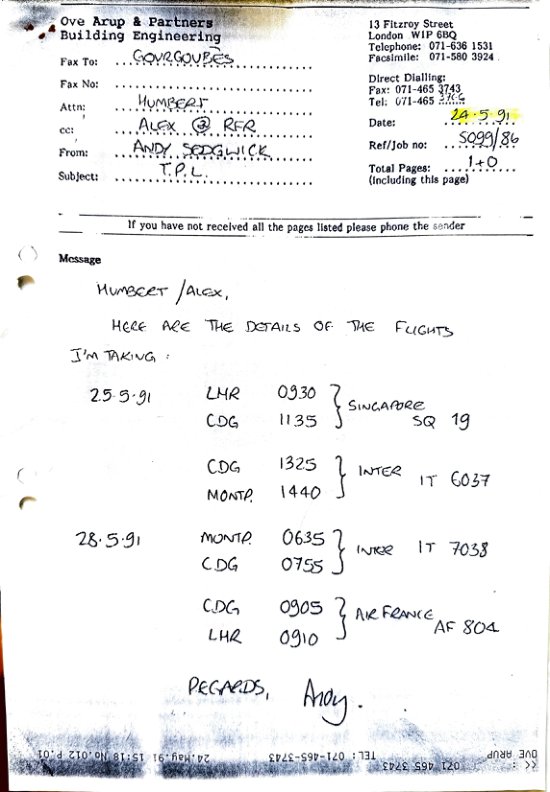 Ove Arup & Partners
Building Engineering
13 Fitzroy Street
London W1P 6BQ
Telephone: 071-636 1531
Facsimile: 071-580 3924
Fax To: GOURGOUBÈS
Fax No:
Attn: HUMBERT
cc: ALEX @ RFR
From: ANDY SEDGWICK
Subject: T.P.L.
Direct Dialling:
Fax: 071-465 3743
Tel: 071-465
Date: 24-5-91
Ref/Job no: 5099/86
Total Pages: 1+0
(Including this page)
If you have not received all the pages listed please phone the sender
Message
HUMBERT / ALEX,
HERE ARE THE DETAILS OF THE FLIGHTS
I'M TAKING :
25-5-91 LHR 0930
CDG 1135
SINGAPORE SQ 19
CDG 1325
MONTP. 1440
INTER IT 6037
28.5.91 MONTP. 0635
CDG 0755
INTER IT 7038
CDG 0905
LHR 0910
AIR FRANCE AF 804
REGARDS, Andy.
24.May.91 15:18 No.012 P.01
TEL: 071-465-3743
OVE ARUP
071 465 3743